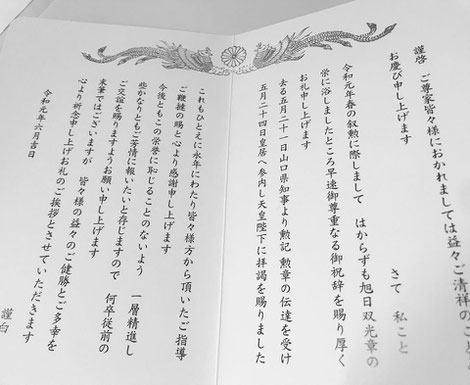 謹啓　ご尊家皆々様におかれましては益々ご清祥のこと
お慶び申し上げます
さて　私こと
令和元年春の叙勲に際しまして　はからずも旭日双光章の
栄に浴しましたところ早速御尊重なる御祝辞を賜り厚く
お礼申し上げます
去る五月二十一日山口県知事より勲記　勲章の伝達を受け
五月二十四日皇居へ参内し天皇陛下に拝謁を賜りました
これもひとえに永年にわたり皆々様方から頂いたご指導
ご鞭撻の賜と心より感謝申し上げます
今後ともこの栄誉に恥じることのないよう　一層精進し
些かなりともご芳情に報いたいと存じますので　何卒従前の
ご交誼を賜りますようお願い申し上げます
末筆ではございますが　皆々様の益々のご健勝とご多幸を
心より祈念申し上げお礼のご挨拶とさせていただきます
謹白
令和元年六月吉日